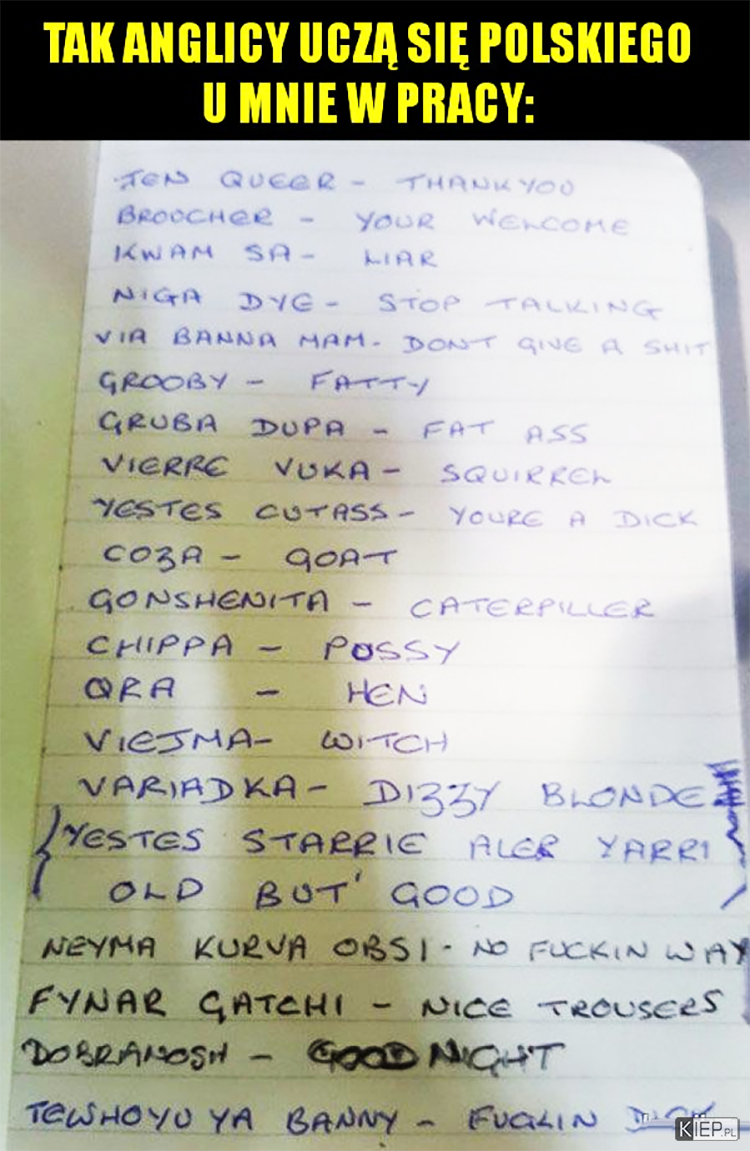 TAK ANGLICY UCZĄ SIĘ POLSKIEGO
U MNIE W PRACY:
JEN QUEER - THANKYOU
BROOCHER - YOUR WELCOME
KWAM SA - LIAR
NIGA DYE - STOP TALKING
VIA BANNA MAM - DONT GIVE A SHIT
GROOBY - FATTY
GRUBA DUPA - FAT ASS
VIERRE VUKA - SQUIRREL
YESTES CUTASS - YOURE A DICK
COZA - GOAT
GONSHENITA - CATERPILLER
CHIPPA - POSSY
QRA - HEN
VIEJMA - WITCH
VARIADKA - DIZZY BLONDE
YESTES STARRIE ALER YARRI
OLD BUT' GOOD
NEYMA KURVA OBSI - NO FUCKIN WAY
FYNAR GATCHI - NICE TROUSERS
DOBRANOSH - GOOD NIGHT
TEWHOYU YA BANNY - FUCKIN
KIEP.PL